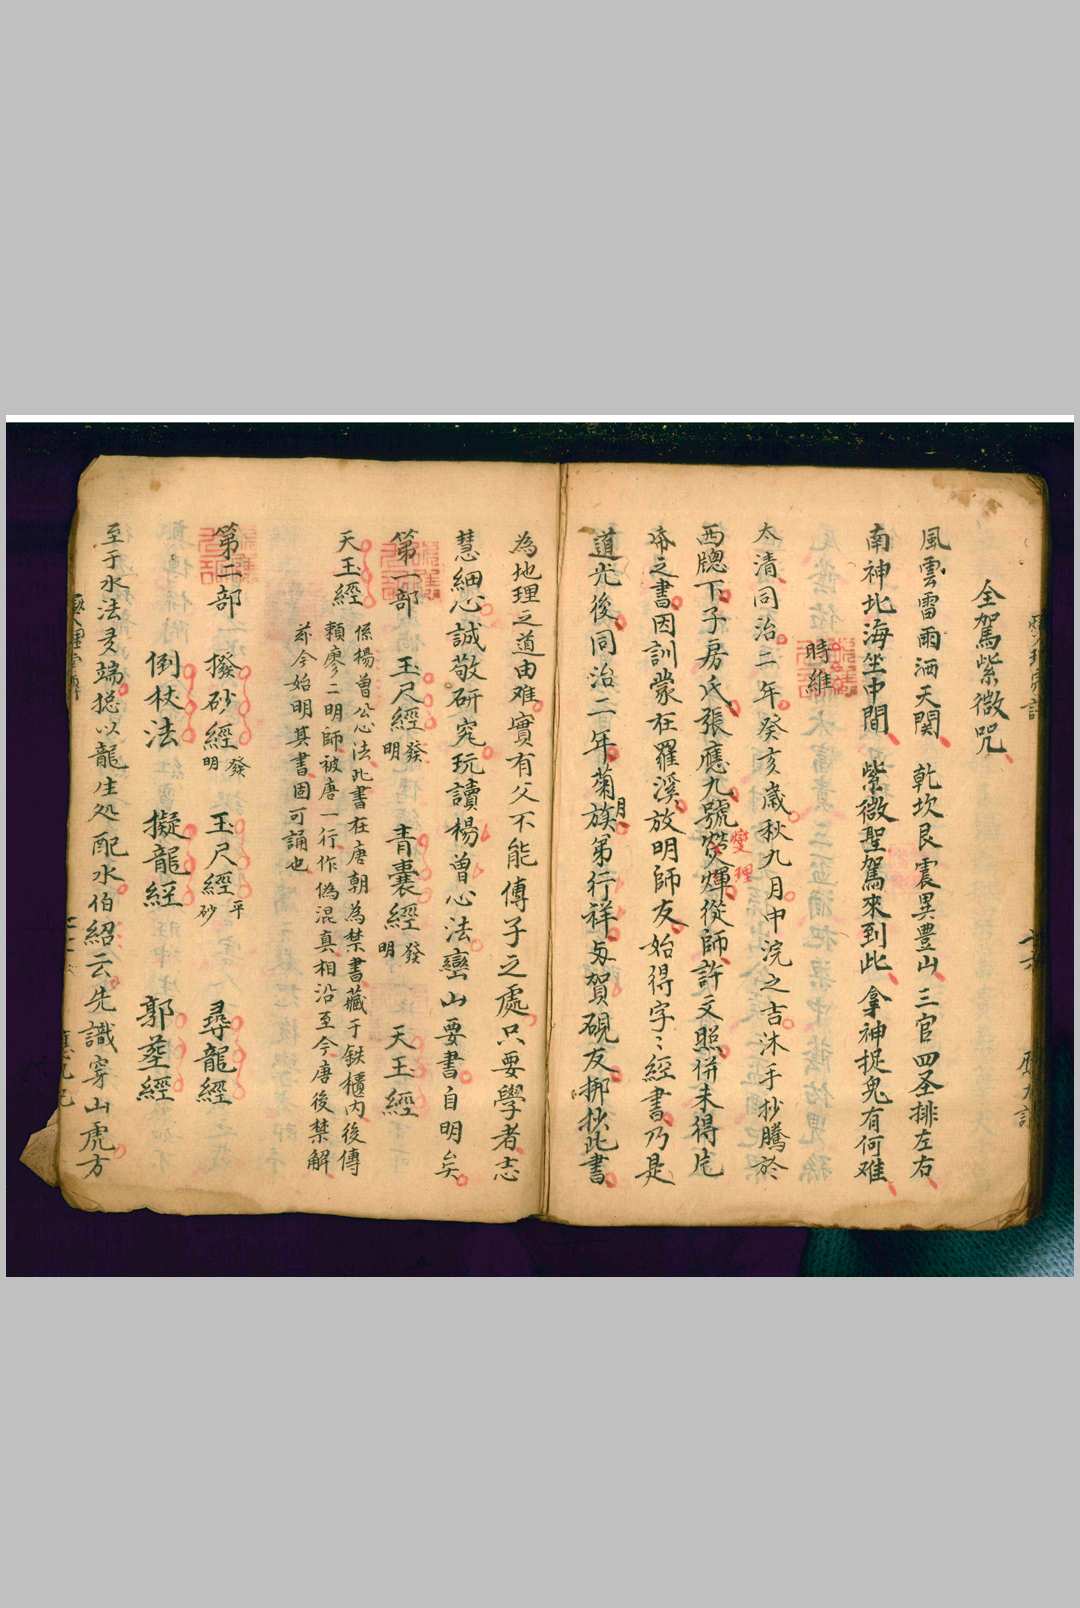 全駕紫微咒
風雲雷雨洒天関 乾坎艮震巽豊山 三官四圣排左右
南神北海坐中間 紫微聖駕來到此 拿神捉鬼有何难
時維
太清同治二年癸亥歲秋九月中浣之吉沐手抄騰於
西牕下子房氏張應九號爕煇從師許文照併未得
變理
帝之書因訓蒙在羅溪放明師友始得字〻經書乃是
道光後同治二年菊月族弟行祥与賀硯友挪抄此書
為地理之道由难實有父不能傳子之處只要學者志
慧細心誠敬研究玩讀楊曾心法巒山要書自明矣
第一部 玉尺經發明 青囊經發明 天玉經
天玉經 係楊曾公心法此書在唐朝為禁書藏于鉄櫃内後傳
賴廖二明師被唐一行作偽混真相沿至今唐後禁解
茲今始明其書固可誦也
第二部 撥砂經發明 玉尺經平砂 尋龍經
倒杖法 擬龍經 郭塟經
至于水法多端揔以龍生处配水伯紹云先識穿山虎方